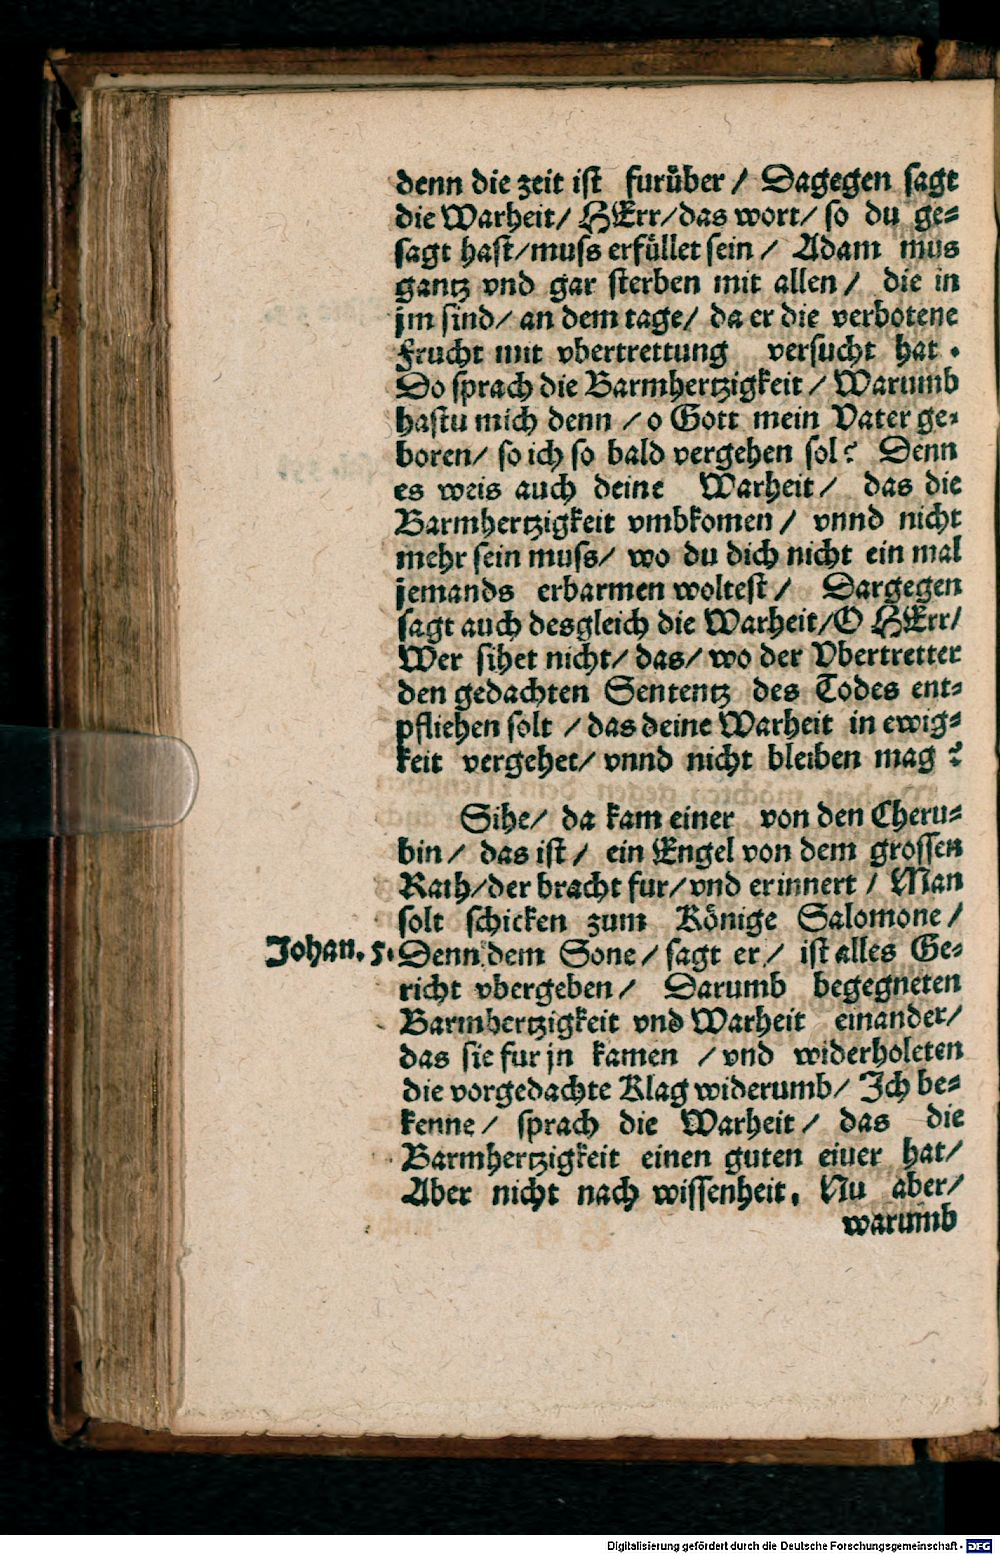 denn die zeit ist furüber / Dagegen sagt
die Warheit / HErr / das wort / so du ge=
sagt hast / muss erfüllet sein / Adam mus
gantz vnd gar sterben mit allen / die in
jm sind / an dem tage / da er die verbotene
Frucht mit vbertrettung versucht hat .
Do sprach die Barmhertzigkeit / Warumb
hastu mich denn / o Gott mein Vater ge=
boren / so ich so bald vergehen sol? Denn
es weis auch deine Warheit / das die
Barmhertzigkeit vmbkomen / vnnd nicht
mehr sein muss / wo du dich nicht ein mal
jemands erbarmen woltest / Dargegen
sagt auch desgleich die Warheit / O HErr /
Wer sihet nicht / das / wo der Vbertretter
den gedachten Sententz des Todes ent=
pfliehen solt / das deine Warheit in ewig=
keit vergehet / vnnd nicht bleiben mag ?
Sihe / da kam einer von den Cheru=
bin / das ist / ein Engel von dem grossen
Rath / der bracht fur / vnd erinnert / Man
solt schicken zum Könige Salomone /
Johan. 5. Denn dem Sone / sagt er / ist alles Ge=
richt vbergeben / Darumb begegneten
Barmhertzigkeit vnd Warheit einander /
das sie fur jn kamen / vnd widerholeten
die vorgedachte Klag widerumb / Ich be=
kenne / sprach die Warheit / das die
Barmhertzigkeit einen guten eiuer hat /
Aber nicht nach wissenheit. Nu aber /
warumb
Digitalisierung gefördert durch die Deutsche Forschungsgemeinschaft - DFG